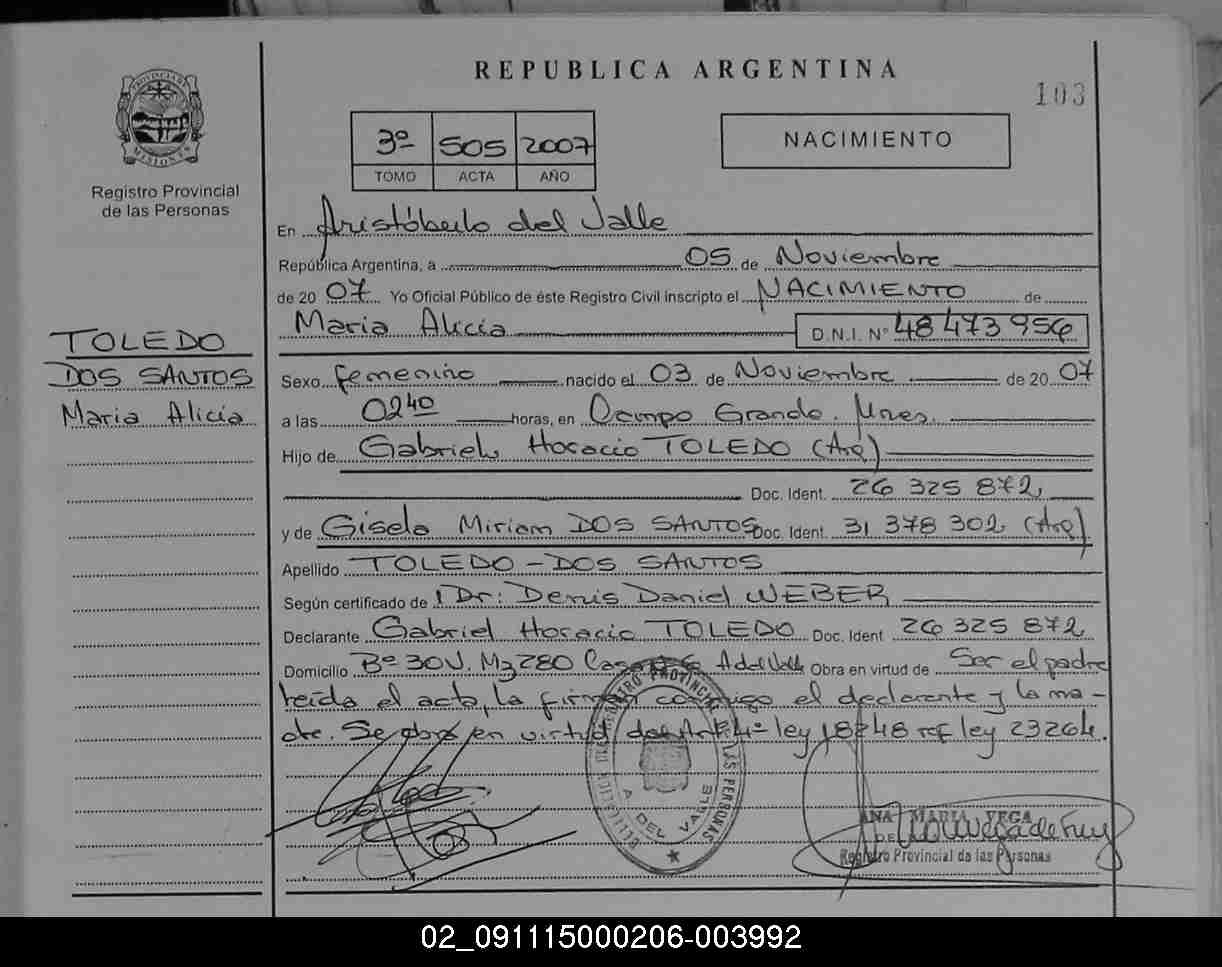 REPUBLICA ARGENTINA
103
PROVINCIA DE
MISIONES
Registro Provincial
de las Personas
3º 505 2007
TOMO ACTA AÑO
NACIMIENTO
En Aristóbulo del Valle
República Argentina, a 05 de Noviembre
de 20 07 Yo Oficial Público de éste Registro Civil inscripto el NACIMIENTO de
Maria Alicia D.N.I. Nº 48 473 956
TOLEDO
DOS SANTOS
Maria Alicia
Sexo femenino nacido el 03 de Noviembre de 20 07
a las 02 40 horas, en Campo Grande. Mnes.
Hijo de Gabriel Horacio TOLEDO (Arg)
Doc. Ident. 26 325 872
y de Gisela Miriam DOS SANTOS Doc. Ident. 31 378 302 (Arg)
Apellido TOLEDO - DOS SANTOS
Según certificado de Dr: Denis Daniel WEBER
Declarante Gabriel Horacio TOLEDO Doc. Ident 26 325 872
Domicilio Bº 30 V. Mz 280 Casa A del Valle Obra en virtud de Ser el padre
leída el acta, la firman conmigo el declarante y la ma-
dre. Se obra en virtud del Art. 4º ley 18248 ref ley 23264.
REGISTRO PROVINCIAL DE LAS PERSONAS
A DEL VALLE
ANA MARIA VEGA
DE
Registro Provincial de las Personas
02_091115000206-003992